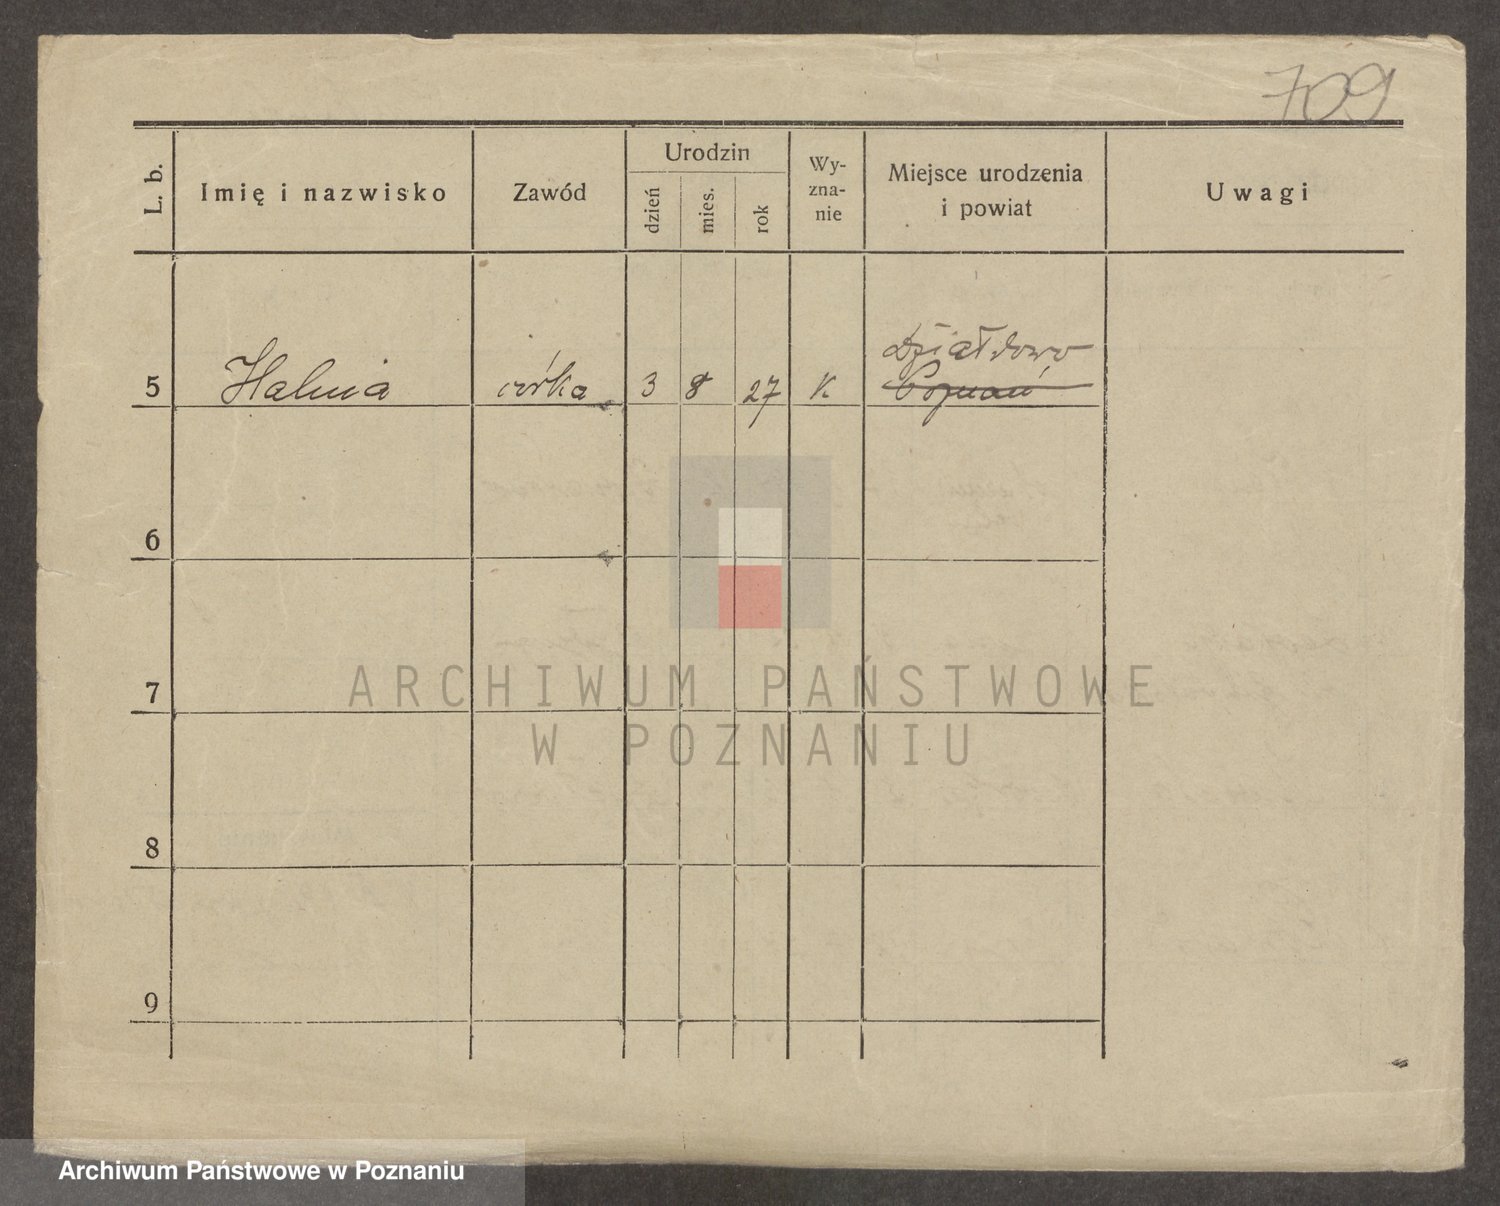 709
L. b.
Imię i nazwisko
Zawód
Urodzin
dzień
mies.
rok
Wy-
zna-
nie
Miejsce urodzenia
i powiat
Uwagi
Działdowo
5 Halina córka 3 8 27 K Poznań
6
7
8
9
ARCHIWUM PAŃSTWOWE
W POZNANIU
Archiwum Państwowe w Poznaniu